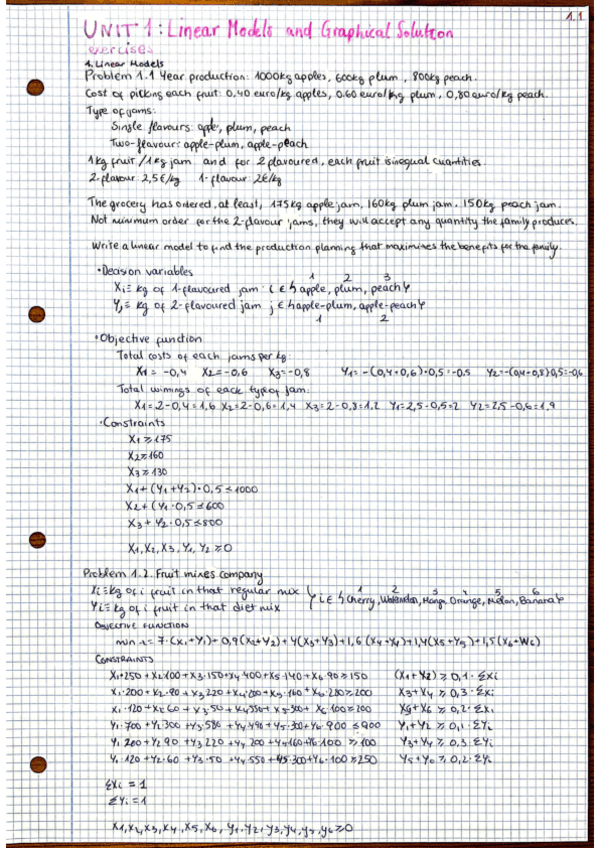 1.1
UNIT 1: Linear Models and Graphical Solution
exercises
1. Linear Models
Problem 1.1 Year production: 1000kg apples, 600kg plum, 800kg peach.
Cost of picking each fruit: 0,40 euro/kg apples, 0.60 euro/kg plum, 0,80 euro/kg peach.
Type of jams:
Single flavours: apple, plum, peach
Two-flavour: apple-plum, apple-peach
1kg fruit/1kg jam and for 2 flavoured, each fruit is inequal cuantities.
2-flavour: 2,5€/kg 1-flavour: 2€/kg
The grocery has ordered, at least, 175kg apple jam, 160kg plum jam, 150kg peach jam.
Not minimum order for the 2-flavour jams, they will accept any quantity the family produces.
Write a linear model to find the production planning that maximises the benefits for the family.
• Decision variables
1 2 3
Xi ≡ kg of 1-flavoured jam i ∈ {apple, plum, peach}
Yj ≡ kg of 2-flavoured jam j ∈ {apple-plum, apple-peach}
1 2
• Objective function
Total costs of each jams per kg:
X1 = -0,4 X2 = -0,6 X3 = -0,8 Y1 = -(0,4+0,6)·0,5 = -0.5 Y2 = -(0,4+0,8)0,5 = -0,6
Total winings of each type of jam:
X1 = 2-0,4 = 1,6 X2 = 2-0,6 = 1,4 X3 = 2-0,8 = 1,2 Y1 = 2,5-0,5 = 2 Y2 = 2,5-0,6 = 1,9
• Constraints
X1 ≥ 175
X2 ≥ 160
X3 ≥ 130
X1 + (Y1+Y2)·0,5 ≤ 1000
X2 + (Y1·0,5 ≤ 600
X3 + Y2·0,5 ≤ 800
X1, X2, X3, Y1, Y2 ≥ 0
Problem 1.2. Fruit mixes company
1 2 3 4 5 6
Xi ≡ kg of i fruit in that regular mix } i ∈ {Cherry, Watermelon, Mango, Orange, Melon, Banana}
Yi ≡ kg of i fruit in that diet mix
OBJECTIVE FUNCTION
min z = 7·(X1+Y1) + 0,9(X2+Y2) + 4(X3+Y3) + 1,6(X4+Y4) + 1,4(X5+Y5) + 1,5(X6+W6)
CONSTRAINTS
X1·250 + X2·100 + X3·150 + X4·400 + X5·140 + X6·90 ≥ 150 (X1+X2) ≥ 0,1·ΣXi
X1·200 + X2·90 + X3·220 + X4·200 + X5·160 + X6·280 ≥ 200 X3+X4 ≥ 0,3·ΣXi
X1·120 + X2·60 + X3·50 + X4·550 + X5·300 + X6·100 ≥ 200 X5+X6 ≥ 0,2·ΣXi
Y1·700 + Y2·300 + Y3·580 + Y4·490 + Y5·300 + Y6·900 ≤ 900 Y1+Y2 ≥ 0,1·ΣYi
Y1·200 + Y2·90 + Y3·220 + Y4·200 + Y5·160 + Y6·100 ≥ 100 Y3+Y4 ≥ 0,3·ΣYi
Y1·120 + Y2·60 + Y3·50 + Y4·550 + Y5·300 + Y6·100 ≥ 250 Y5+Y6 ≥ 0,2·ΣYi
ΣXi = 1
ΣYi = 1
X1, X2, X3, X4, X5, X6, Y1, Y2, Y3, Y4, Y5, Y6 ≥ 0